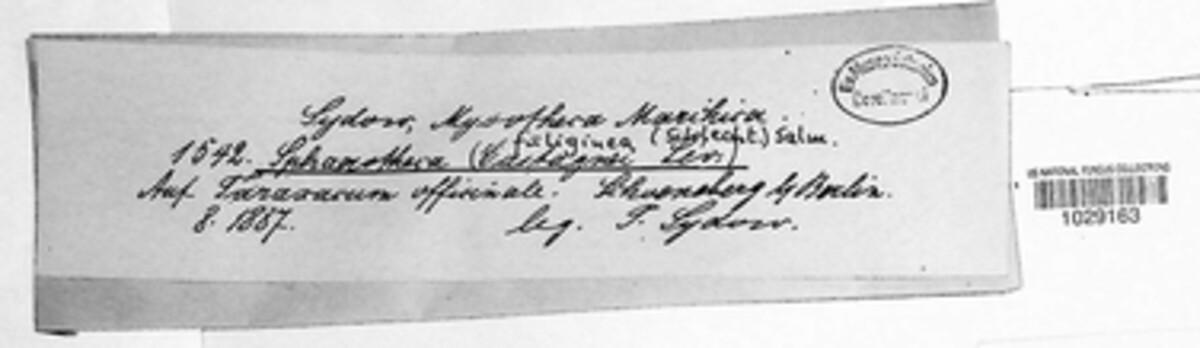 Sydow, Mycotheca Marchica.
fuliginea (Schlecht.) Salm.
1542. Sphaerotheca (Castagnei Lev.)
Auf Taraxacum officinale. Schoeneberg b/ Berlin.
8. 1887. leg. P. Sydow.
US NATIONAL FUNGUS COLLECTIONS
1029163